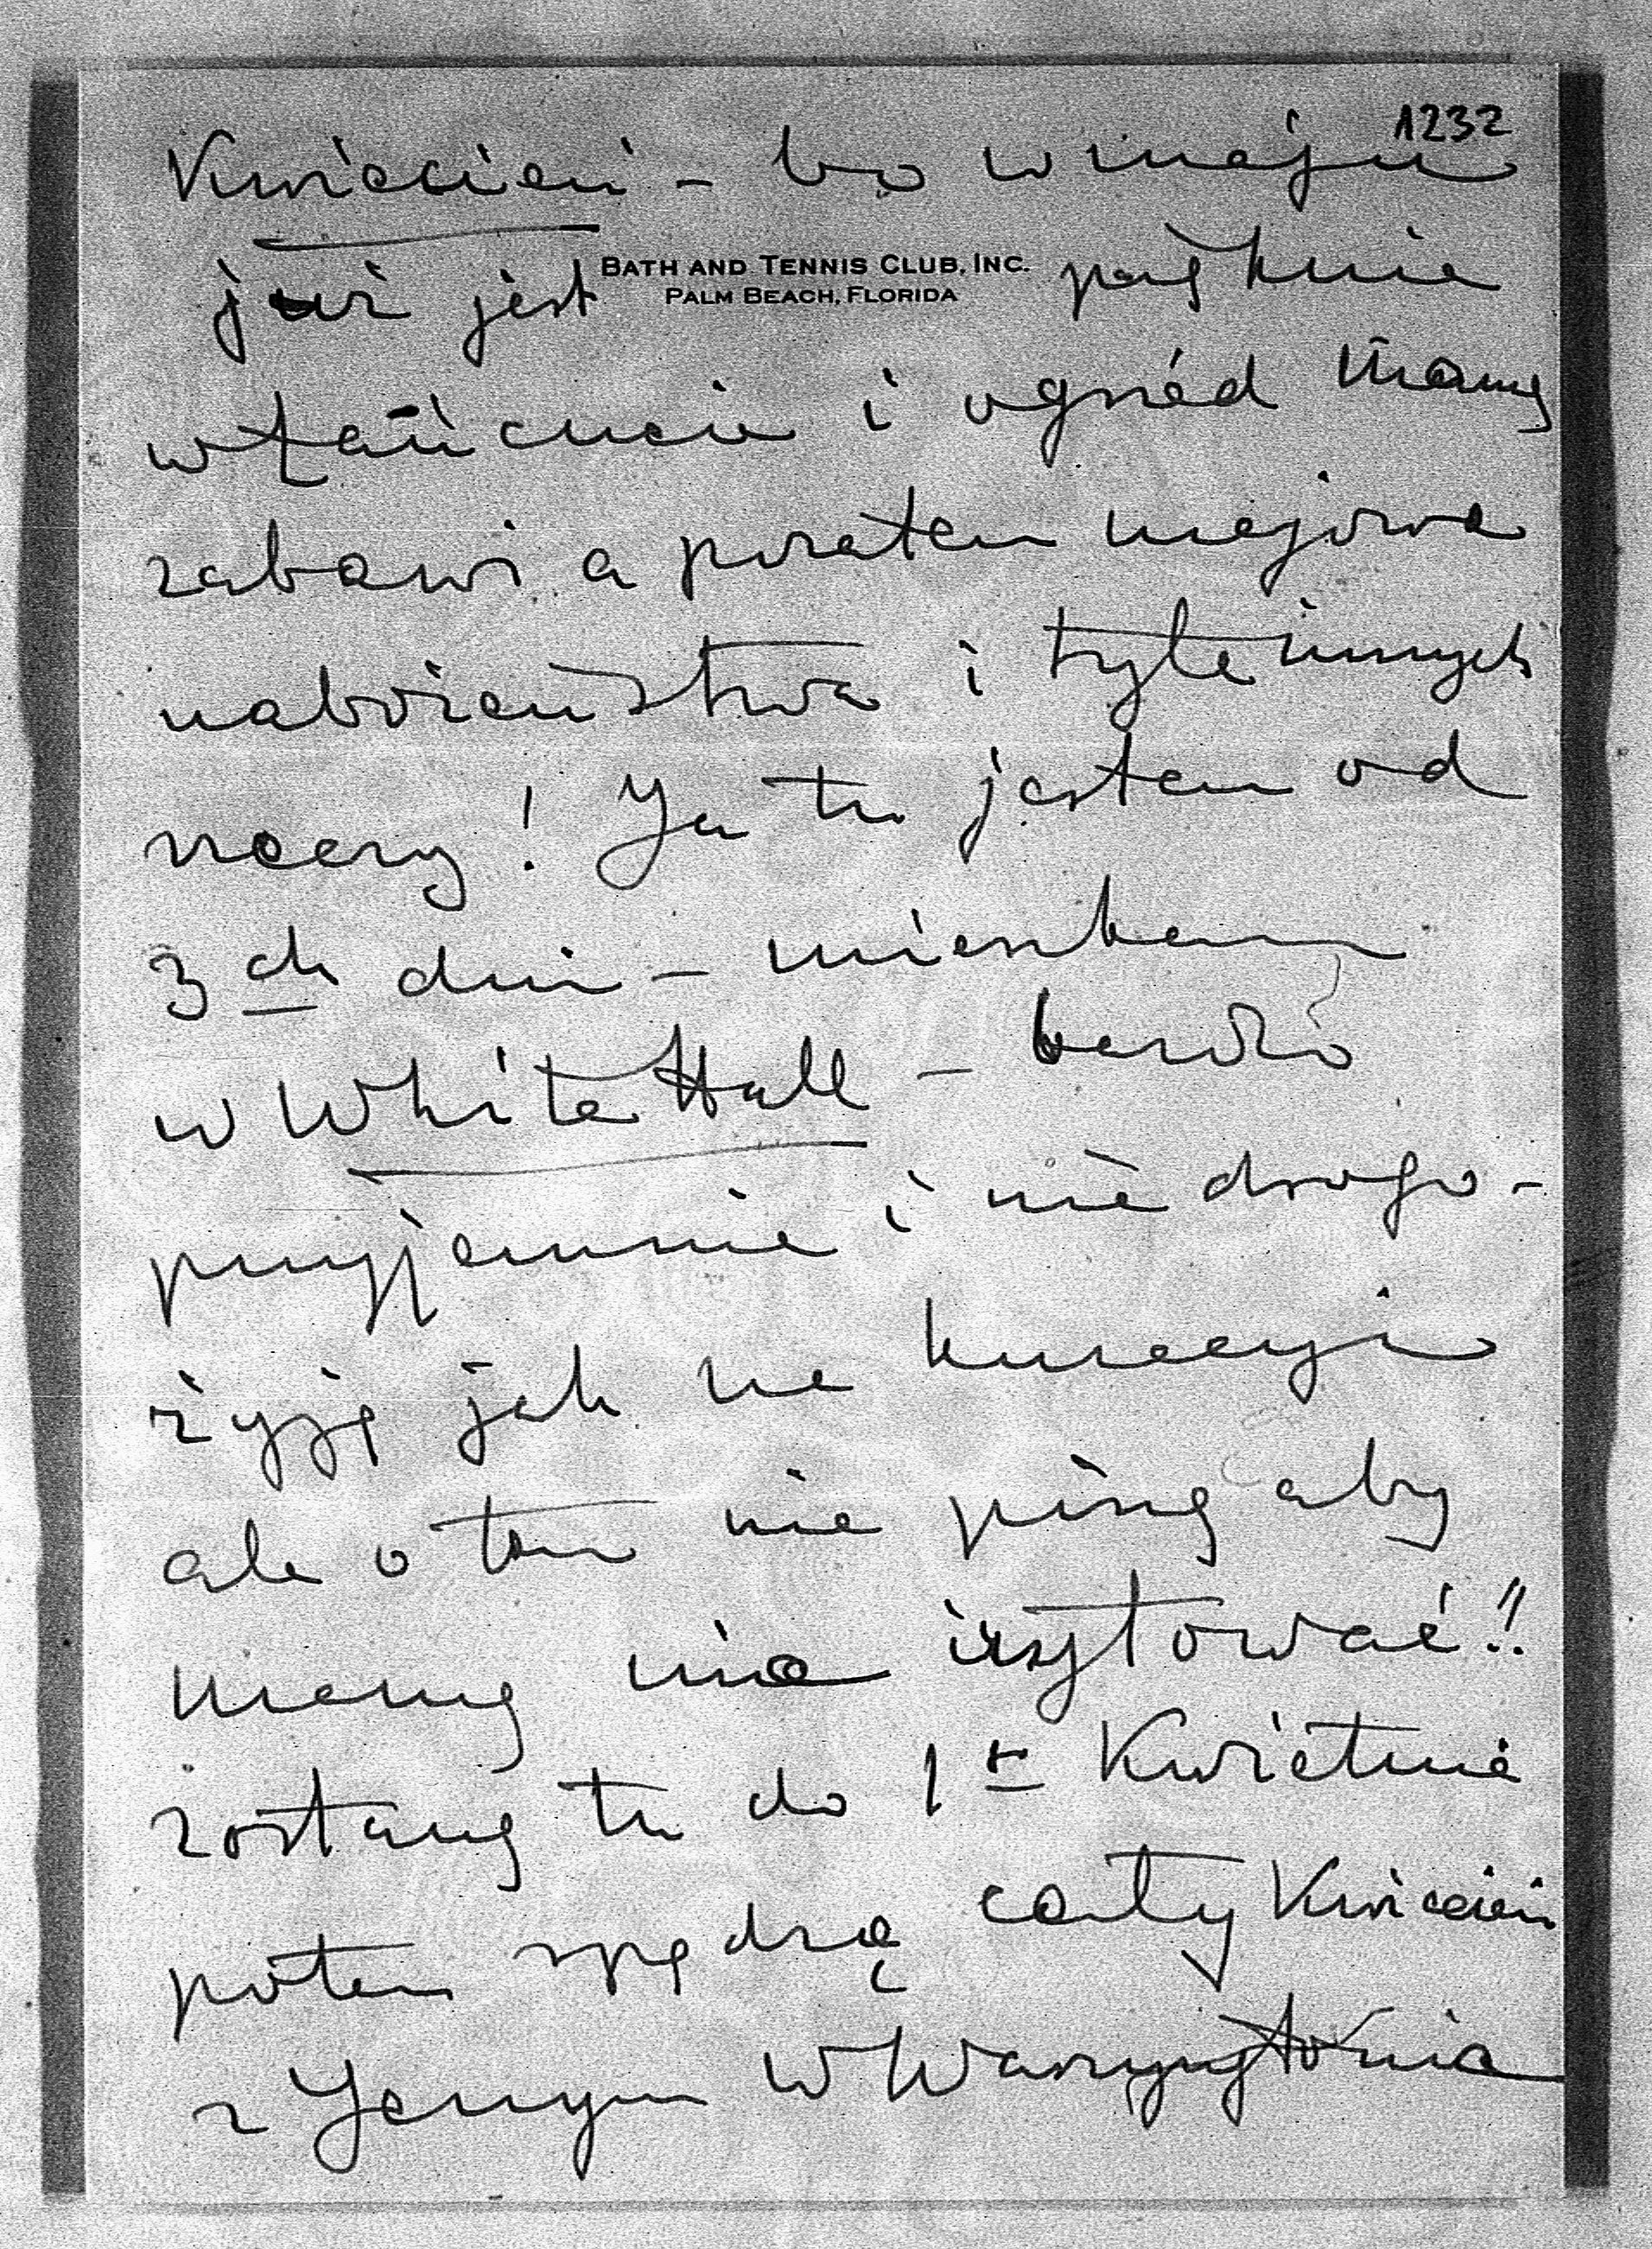 1232
Kwiecień - bo w maju
BATH AND TENNIS CLUB, INC.
PALM BEACH, FLORIDA
już jest pięknie
w Łańcucie i ogród Mamę
zabawi a pozatem majowe
nabożeństwa i tyle innych
rzeczy! Ja tu jestem od
3 ch dni - mieszkam
w White Hall - bardzo
przyjemnie i nie drogo -
żyję jak na kuracyi
ale o tem nie piszę aby
Mamy nie irytować!!
zostanę tu do 1 r Kwietnia
potem spędzę cały Kwiecień
z Jerzym w Waszyngtonie